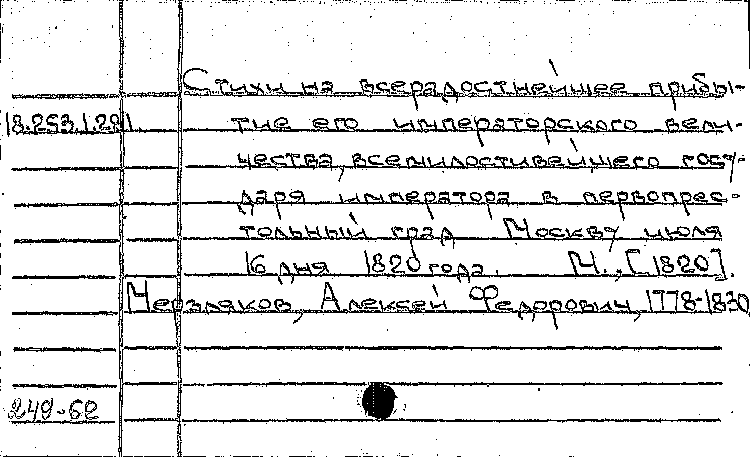 Стихи на всерадостнейшее прибы-
18.253.1.281. тие его императорского вели-
чества, всемилостивейшего госу-
даря императора в первопрес-
тольный град Москву июля
16 дня 1820 года. М., [1820].
Мерзляков, Алексей Федорович, 1778-1830
249-62